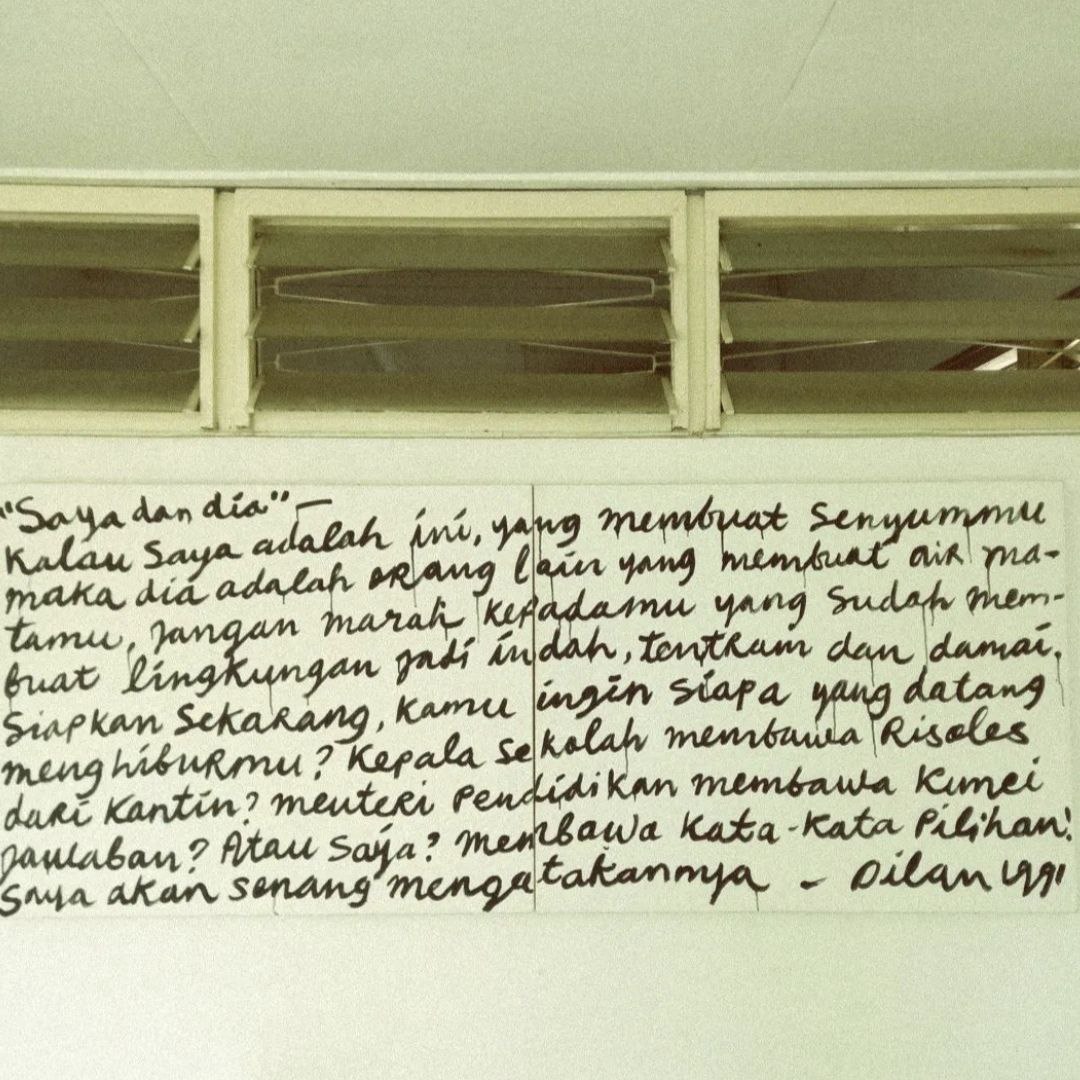 "Saya dan dia" -
Kalau saya adalah ini, yang membuat senyummu
maka dia adalah orang lain yang membuat air ma-
tamu, jangan marah kepadamu yang sudah mem-
buat lingkungan jadi indah, tentram dan damai.
Siapkan sekarang, kamu ingin siapa yang datang
menghiburmu? Kepala sekolah membawa Risoles
dari kantin? menteri Pendidikan membawa Kunci
jawaban? Atau saya? membawa kata-kata Pilihan!
Saya akan senang mengatakannya - Dilan 1991